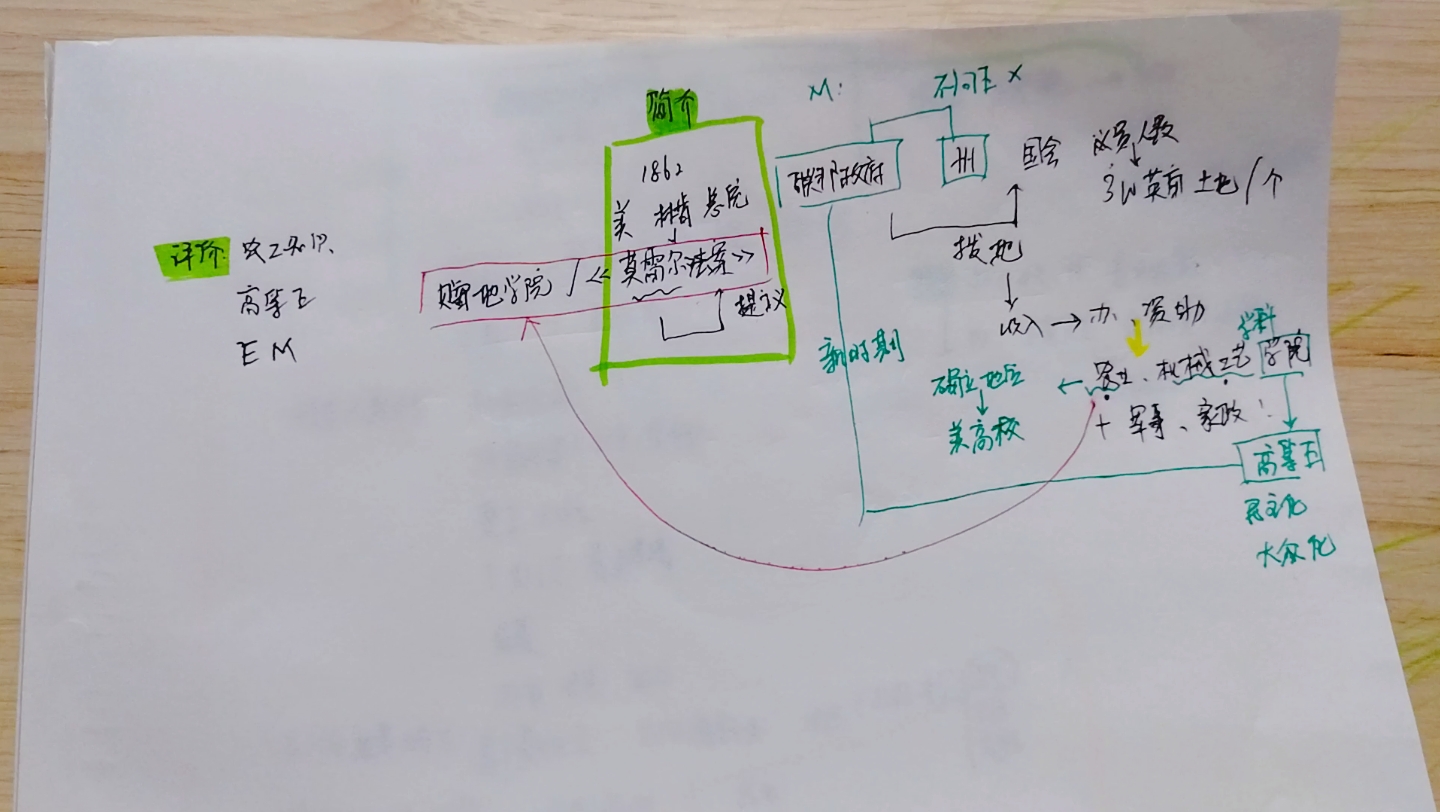 简介
1862
美 林肯 总统
赠地学院 / 《莫雷尔法案》
提议
评价: 农工知识、
高等E
E M
M: 不问E ×
联邦政府
州
国会 议员人数
3W英亩 土地/个
拨地
收入 → 办、资助
学科
农业、机械工艺 学院
+ 军事、家政!
新时期
确立地位
美高校
高等E
民主化
大众化